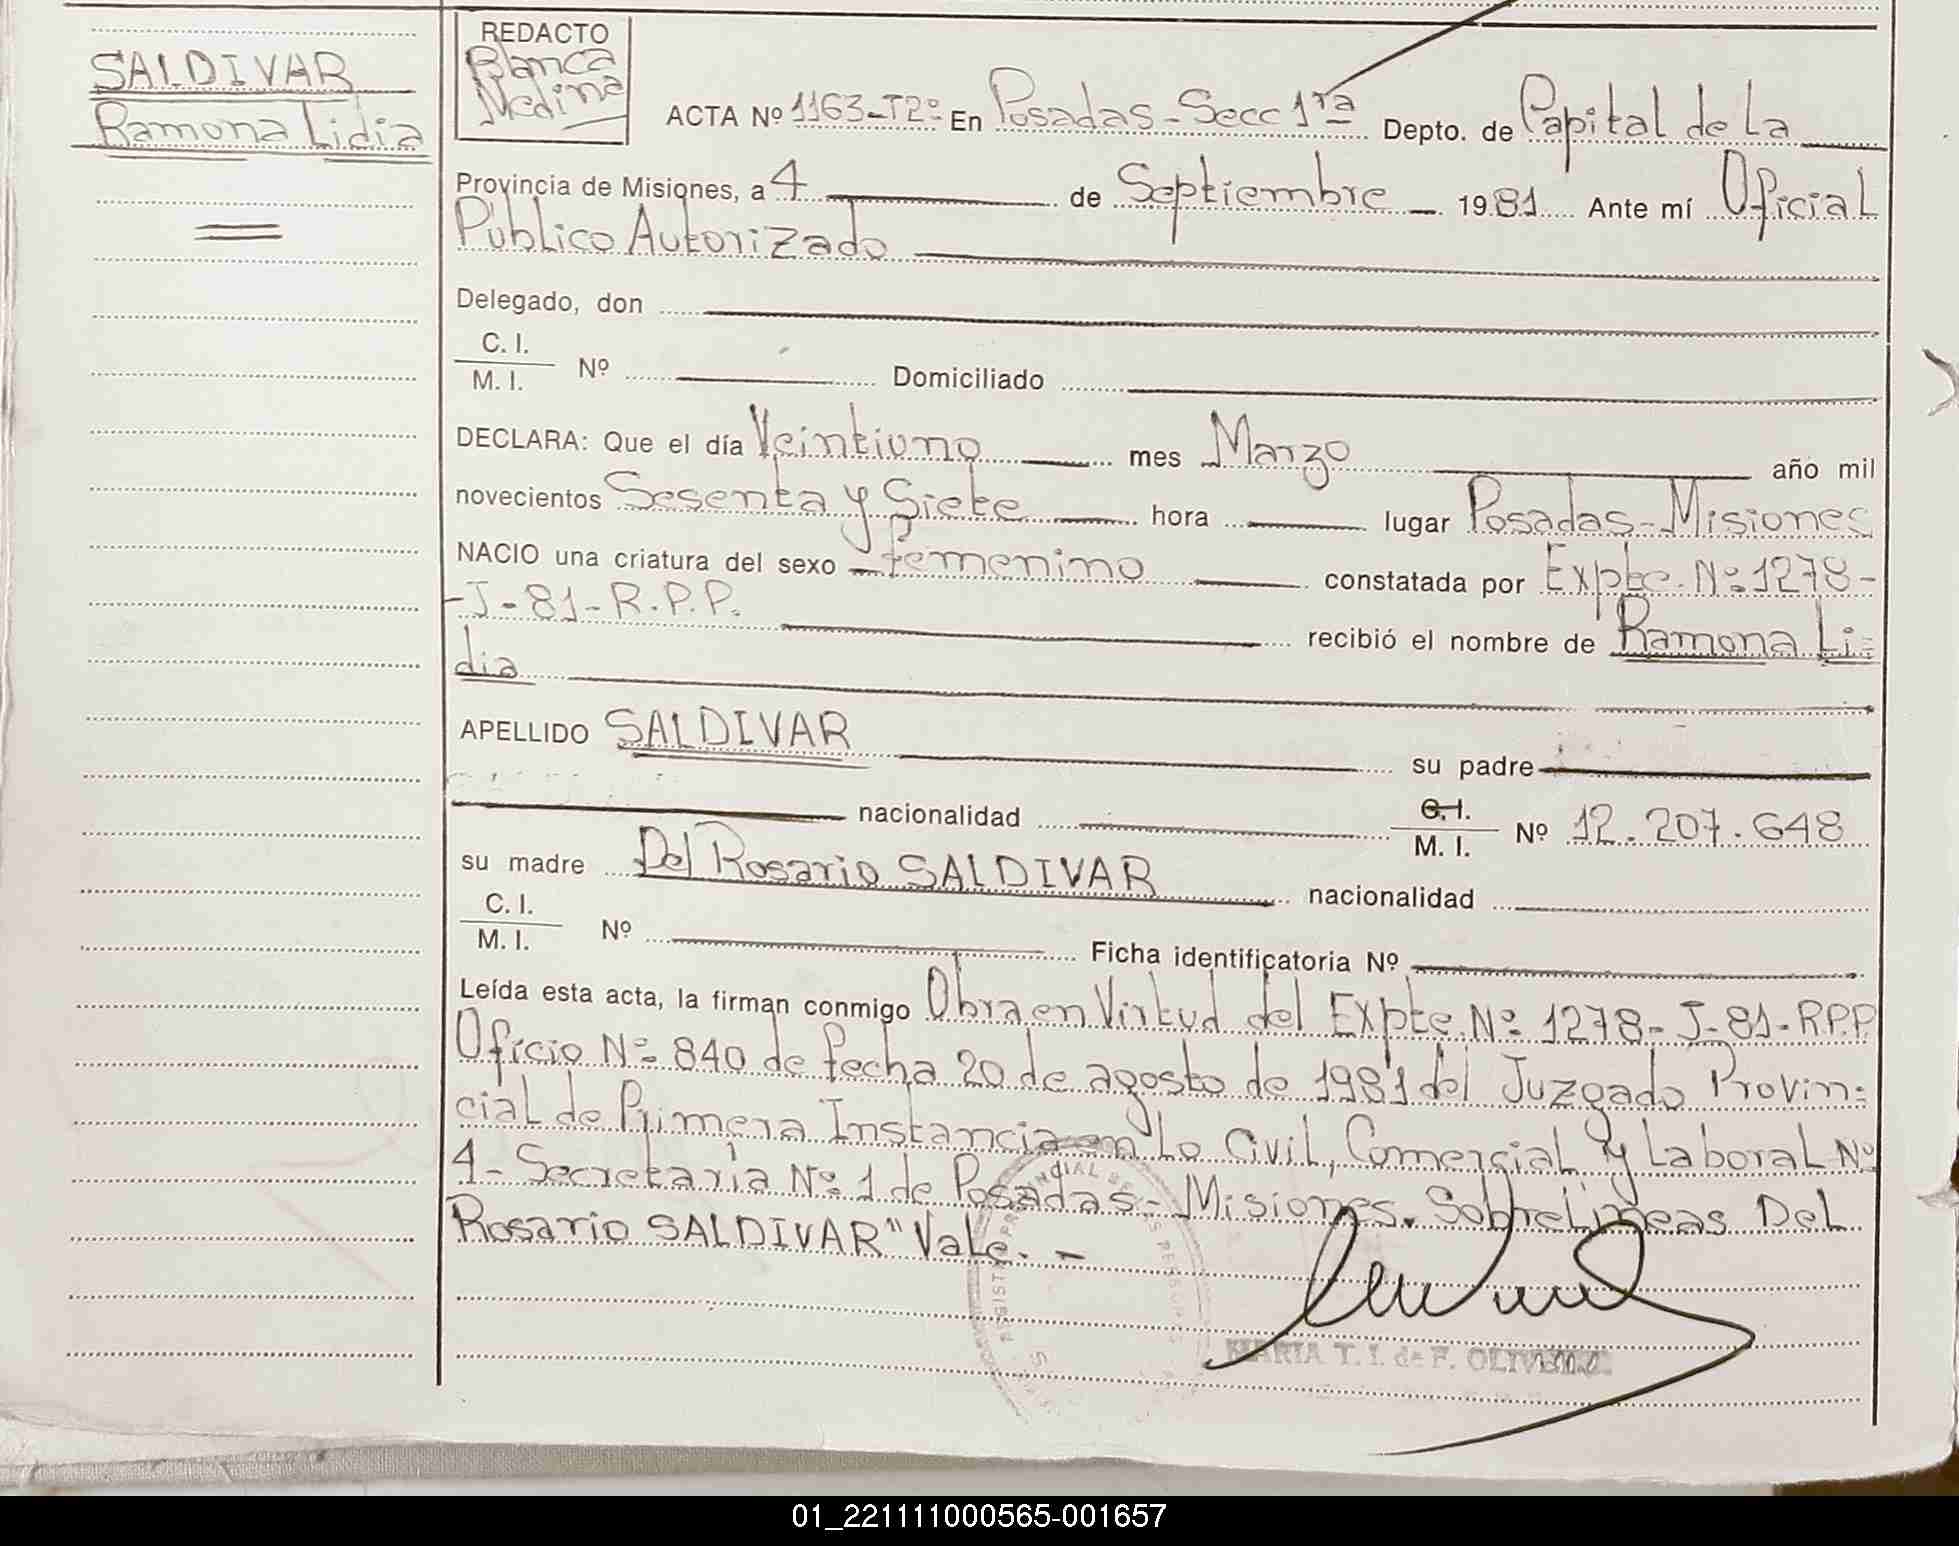 SALDIVAR
Ramona Lidia
REDACTO
Blanca
Medina
ACTA Nº 1163-T2º En Posadas - Secc 1ra Depto. de Capital de La
Provincia de Misiones, a 4 de Septiembre 1981 Ante mí Oficial
Público Autorizado
Delegado, don
C. I.
M. I. Nº Domiciliado
DECLARA: Que el día Veintiuno mes Marzo año mil
novecientos Sesenta y Siete hora lugar Posadas - Misiones
NACIO una criatura del sexo femenino constatada por Expte. Nº 1278-
-J-81-R.P.P. recibió el nombre de Ramona Li=
dia
APELLIDO SALDIVAR su padre
nacionalidad C. I.
M. I. Nº 12.207.648
su madre Del Rosario SALDIVAR nacionalidad
C. I.
M. I. Nº Ficha identificatoria Nº
Leída esta acta, la firman conmigo Obra en Virtud del Expte. Nº 1278-J-81-R.P.P
Oficio Nº 840 de fecha 20 de agosto de 1981 del Juzgado Provin=
cial de Primera Instancia en Lo Civil, Comercial y Laboral Nº
4- Secretaria Nº 1 de Posadas - Misiones. Sobrelineas Del
Rosario SALDIVAR" Vale. -
MARIA T. I. de F.
01_221111000565-001657